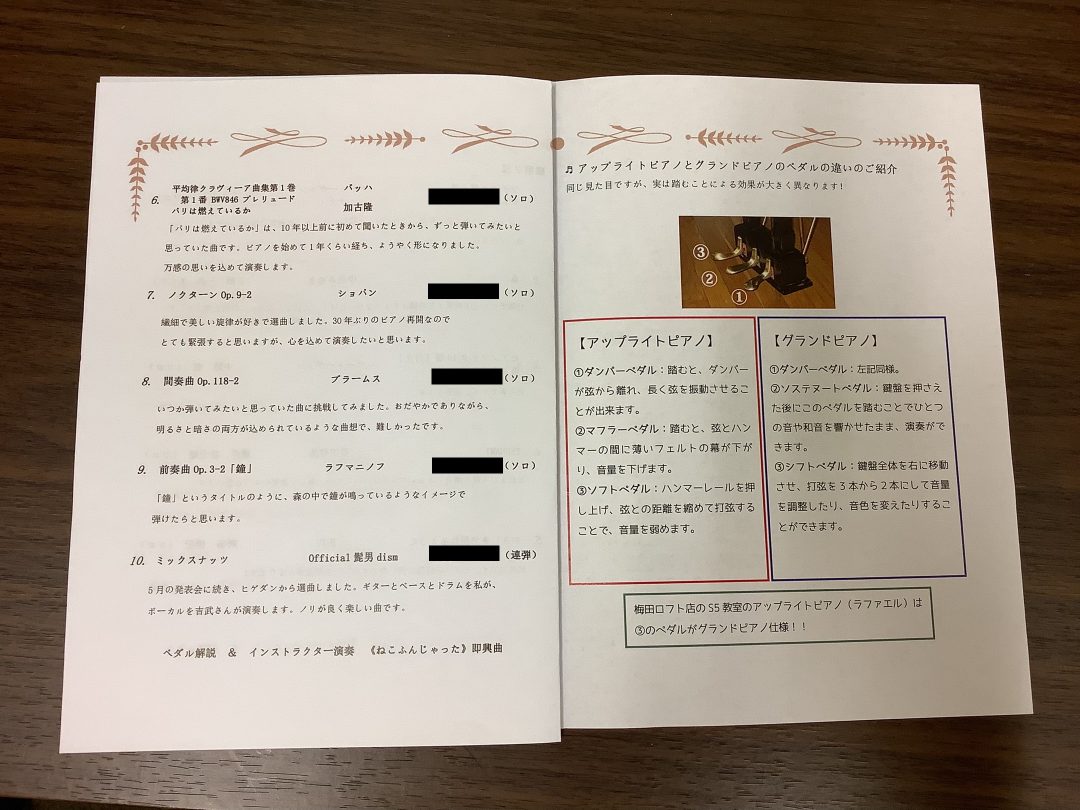 6. 平均律クラヴィーア曲集第1巻 バッハ (ソロ)
第1番 BWV846 プレリュード
パリは燃えているか 加古隆
「パリは燃えているか」は、10年以上前に初めて聞いたときから、ずっと弾いてみたいと
思っていた曲です。ピアノを始めて1年くらい経ち、ようやく形になりました。
万感の思いを込めて演奏します。
7. ノクターン Op.9-2 ショパン (ソロ)
繊細で美しい旋律が好きで選曲しました。30年ぶりのピアノ再開なので
とても緊張すると思いますが、心を込めて演奏したいと思います。
8. 間奏曲 Op.118-2 ブラームス (ソロ)
いつか弾いてみたいと思っていた曲に挑戦してみました。おだやかでありながら、
明るさと暗さの両方が込められているような曲想で、難しかったです。
9. 前奏曲 Op.3-2「鐘」 ラフマニノフ (ソロ)
「鐘」というタイトルのように、森の中で鐘が鳴っているようなイメージで
弾けたらと思います。
10. ミックスナッツ Official髭男dism (連弾)
5月の発表会に続き、ヒゲダンから選曲しました。ギターとベースとドラムを私が、
ボーカルを吉武さんが演奏します。ノリが良く楽しい曲です。
ペダル解説 & インストラクター演奏 《ねこふんじゃった》即興曲
♬アップライトピアノとグランドピアノのペダルの違いのご紹介
同じ見た目ですが、実は踏むことによる効果が大きく異なります!
③
②
①
【アップライトピアノ】
①ダンパーペダル:踏むと、ダンパー
が弦から離れ、長く弦を振動させるこ
とが出来ます。
②マフラーペダル:踏むと、弦とハン
マーの間に薄いフェルトの幕が下が
り、音量を下げます。
③ソフトペダル:ハンマーレールを押
し上げ、弦との距離を縮めて打弦する
ことで、音量を弱めます。
【グランドピアノ】
①ダンパーペダル:左記同様。
②ソステヌートペダル:鍵盤を押さえ
た後にこのペダルを踏むことでひとつ
の音や和音を響かせたまま、演奏がで
きます。
③シフトペダル:鍵盤全体を右に移動
させ、打弦を3本から2本にして音量
を調整したり、音色を変えたりするこ
とができます。
梅田ロフト店のS5教室のアップライトピアノ(ラファエル)は
③のペダルがグランドピアノ仕様!!